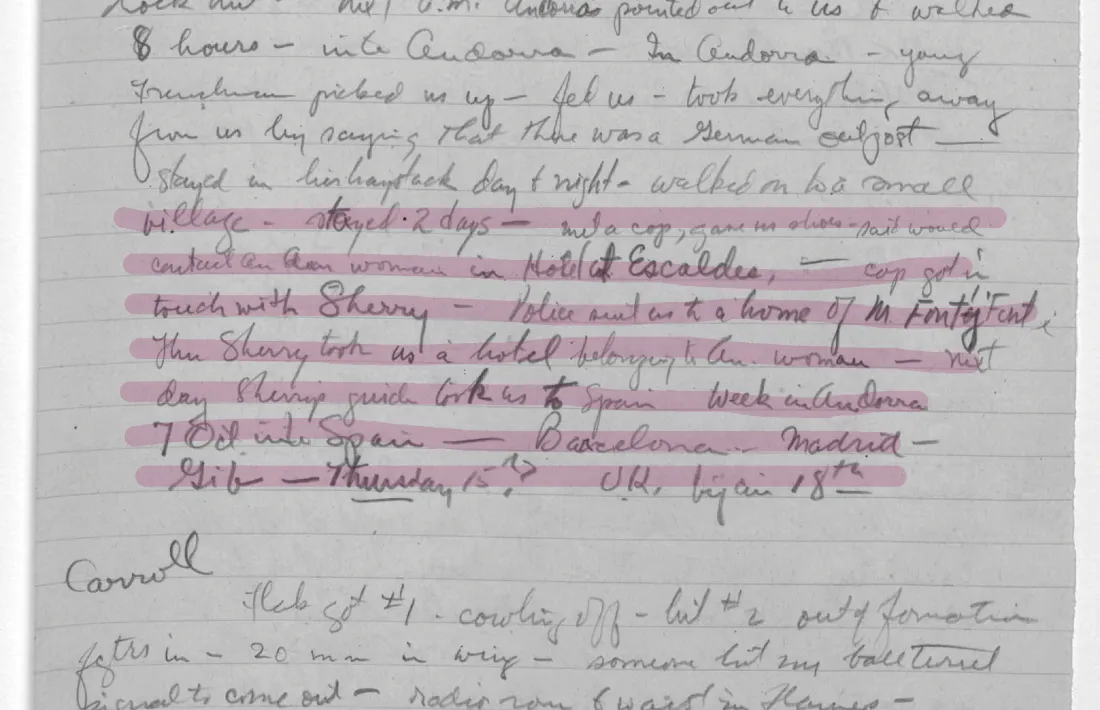 next a.m. Andorra pointed out to us & walked
8 hours – into Andorra – In Andorra – young
Frenchman picked us up – fed us – took everything away
from us by saying that there was a German outpost —
stayed in his haystack day & night – walked on to a small
village – stayed 2 days — met a cop, gave us shoes – said would
contact an Am woman in Hotel at Escaldes, — cop got in
touch with Sherry – Police sent us to a home of M.
Then Sherry took us a hotel belonging to Am. woman — next
day Sherry's guide took us to Spain Week in Andorra
7 Oct into Spain — Barcelona – Madrid –
Gib — Thursday 15? U.K. by air 18th
Carroll
Flak got #1 – cowling off – hit #2 out of formation
fgtrs in – 20 mm in wing – someone hit my ball turret
signal to come out – radio room & waist in flames –